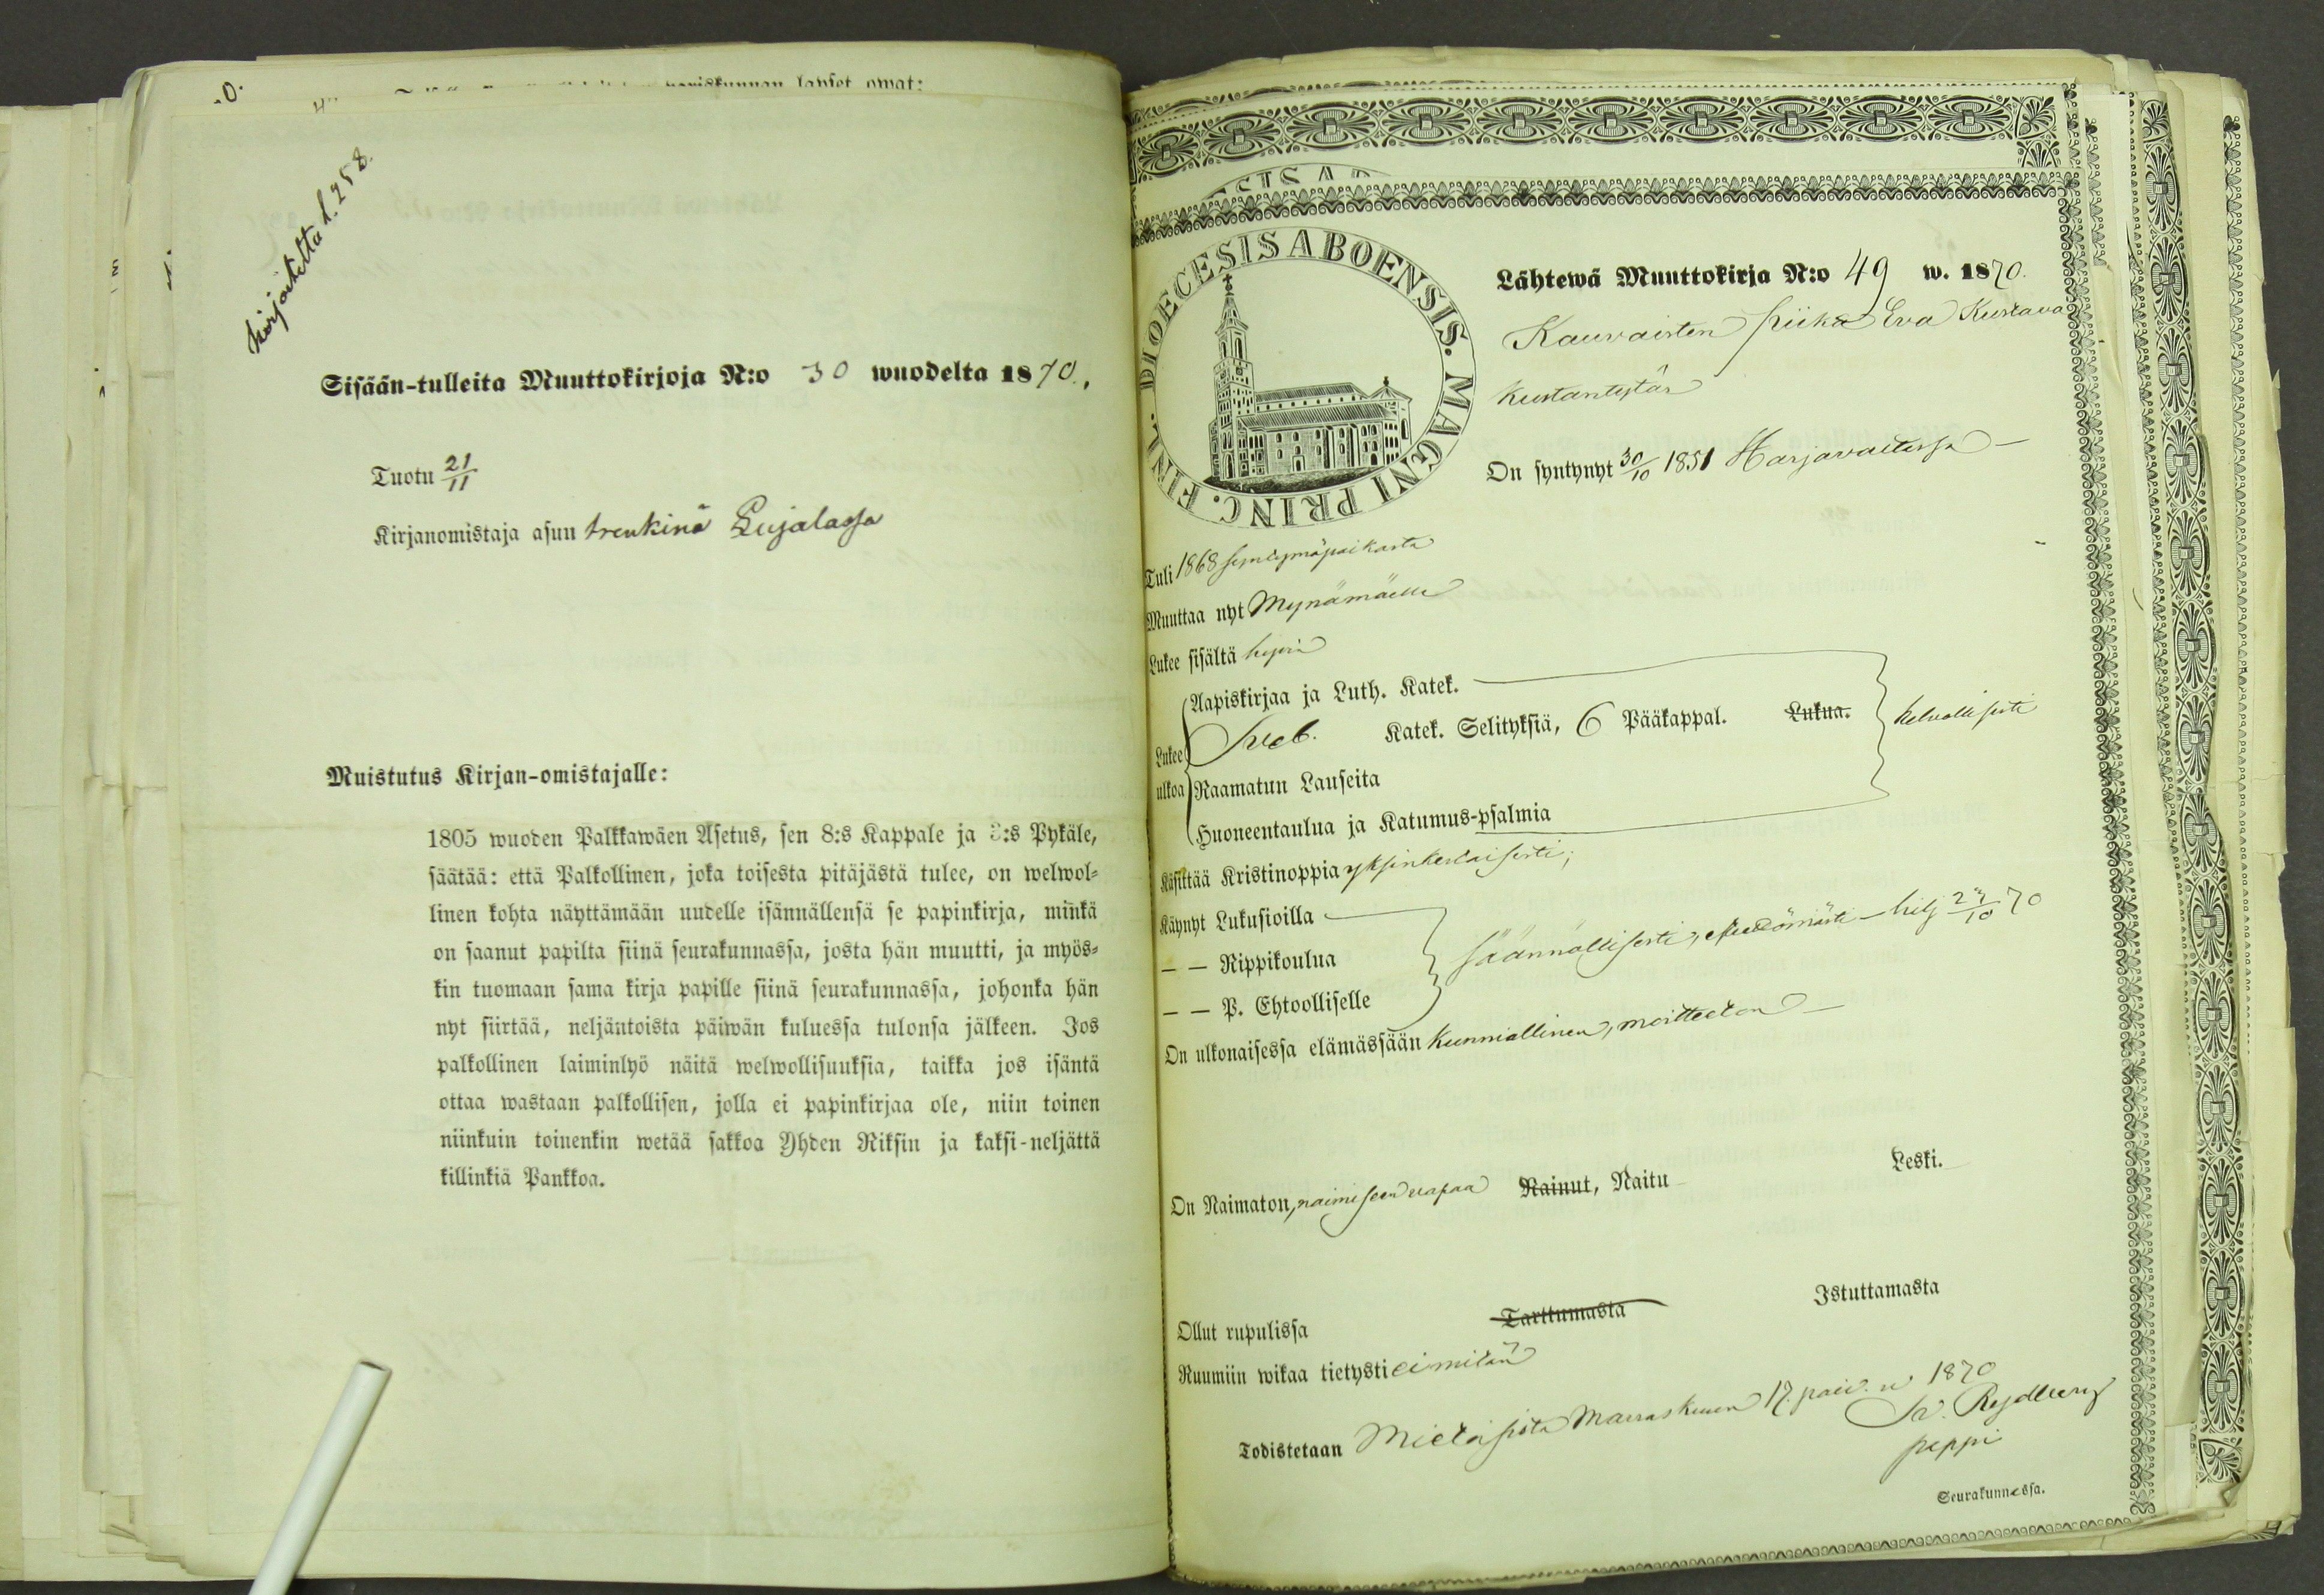 kirjoitettu l. 258.
Sisään-tulleita Muuttokirjoja N:o 30 wuodelta 1870.
Tuotu 21/11
Kirjanomistaja asuu trenkinä Lujalassa
Muistutus Kirjan-omistajalle:
1805 wuoden Palkkawäen Asetus, sen 8:s Kappale ja 3:s Pykäle,
säätää: että Palkollinen, joka toisesta pitäjästä tulee, on welwol-
linen kohta näyttämään uudelle isännällensä se papinkirja, minkä
on saanut papilta siinä seurakunnassa, josta hän muutti, ja myös-
kin tuomaan sama kirja papille siinä seurakunnassa, johonka hän
nyt siirtää, neljäntoista päiwän kuluessa tulonsa jälkeen. Jos
palkollinen laiminlyö näitä welwollisuuksia, taikka jos isäntä
ottaa wastaan palkollisen, jolla ei papinkirjaa ole, niin toinen
niinkuin toinenkin wetää sakkoa Yhden Riksin ja kaksi-neljättä
killinkiä Pankkoa.
DIOECESIS ABOENSIS. MAGNI PRINC. FINL.
Lähtewä Muuttokirja N:o 49 w. 1870.
Kauvaisten piika Eva Kustava
Kustantytär
On syntynyt 30/10 1851 Harjavallassa
Tuli 1868 syntymäpaikasta
Muuttaa nyt Mynämäelle
Lukee sisältä hyvin
Lukee ulkoa
Aapiskirjaa ja Luth. Katek.
Sveb. Katek. Selityksiä, 6 Pääkappal. Lukua. kelvollisesti
Raamatun Lauseita
Huoneentaulua ja Katumus-psalmia
Käsittää Kristinoppia yksinkertaisesti;
Käynyt Lukusioilla
— — Rippikoulua säännöllisesti,
— — P. Ehtoolliselle
On ulkonaisessa elämässään kunniallinen, moitteeton
On Naimaton, naimiseen vapaa Nainut, Naitu Leski.
Ollut rupulissa Tarttumasta Istuttamasta
Ruumiin wikaa tietysti ei mitän
Todistetaan Mietoisista Marraskuun 17. päiv. w 1870
Rydberg
pappi
Seurakunnassa.